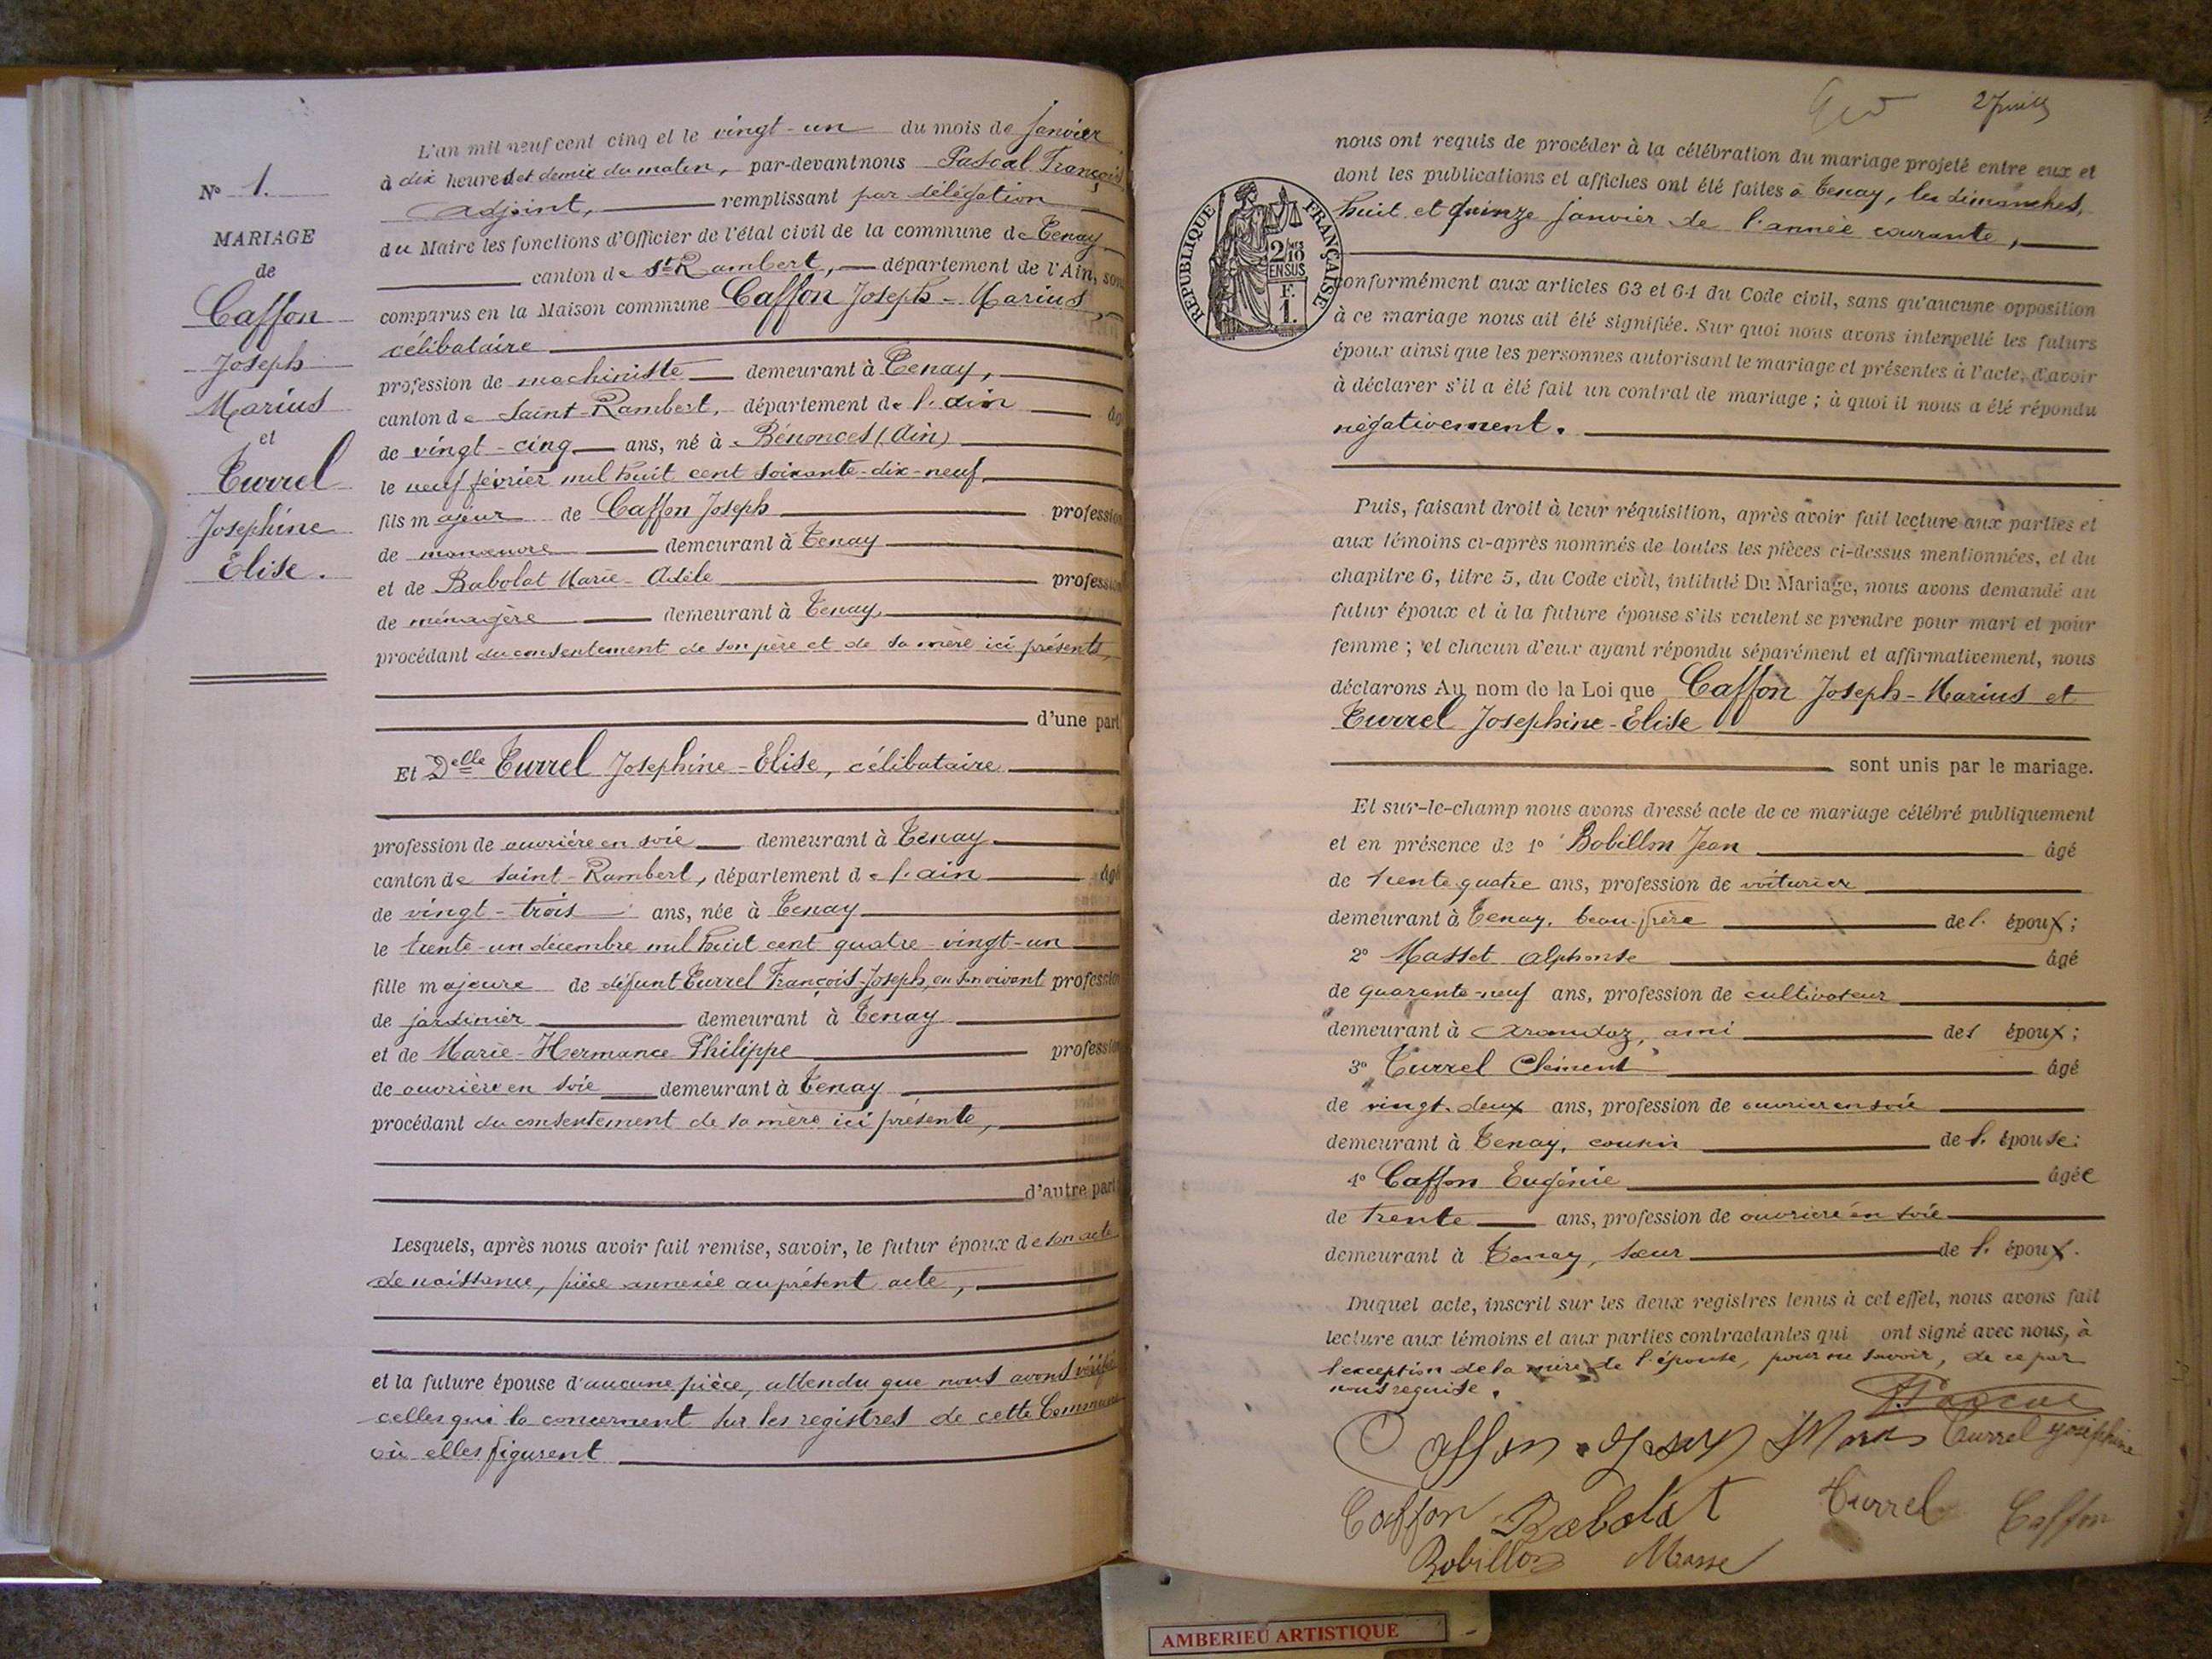 N° 1.
MARIAGE
de
Caffon
Joseph
Marius
et
Turrel
Josephine
Élise.
L'an mil neuf cent cinq et le vingt-un du mois de janvier
à dix heures et demie du matin, par-devant nous Pascal François
adjoint, remplissant par délégation
du Maire les fonctions d'Officier de l'état civil de la commune de Tenay
canton de St Rambert, département de l'Ain, sont
comparus en la Maison commune Caffon Joseph-Marius,
célibataire
profession de machiniste demeurant à Tenay,
canton de Saint-Rambert, département de l'ain âgé
de vingt-cinq ans, né à Bénonces (Ain)
le neuf février mil huit cent soixante-dix-neuf
fils majeur de Caffon Joseph profession
de manœuvre demeurant à Tenay
et de Babolat Marie-Adèle profession
de ménagère demeurant à Tenay,
procédant du consentement de son père et de sa mère ici présents,
d'une part
Et Delle Turrel Josephine-Elise, célibataire
profession de ouvrière en soie demeurant à Tenay
canton de Saint-Rambert, département de l'ain âgé
de vingt-trois ans, née à Tenay
le trente-un décembre mil huit cent quatre-vingt-un
fille majeure de défunt Turrel François-Joseph, en son vivant profession
de jardinier demeurant à Tenay
et de Marie-Hermance Philippe profession
de ouvrière en soie demeurant à Tenay
procédant du consentement de sa mère ici présente,
d'autre part
Lesquels, après nous avoir fait remise, savoir, le futur époux de son acte
de naissance, pièce annexée au présent acte,
et la future épouse d'aucune pièce, attendu que nous avons vérifié
celles qui la concernent sur les registres de cette Commune
où elles figurent
2
RÉPUBLIQUE FRANÇAISE
2/10 EN SUS
F.
1.
nous ont requis de procéder à la célébration du mariage projeté entre eux et
dont les publications et affiches ont été faites à Tenay, les dimanches,
huit et quinze janvier de l'année courante,
conformément aux articles 63 et 64 du Code civil, sans qu'aucune opposition
à ce mariage nous ait été signifiée. Sur quoi nous avons interpellé les futurs
époux ainsi que les personnes autorisant le mariage et présentes à l'acte, d'avoir
à déclarer s'il a été fait un contrat de mariage ; à quoi il nous a été répondu
négativement.
Puis, faisant droit à leur réquisition, après avoir fait lecture aux parties et
aux témoins ci-après nommés de toutes les pièces ci-dessus mentionnées, et du
chapitre 6, titre 5, du Code civil, intitulé Du Mariage, nous avons demandé au
futur époux et à la future épouse s'ils veulent se prendre pour mari et pour
femme ; et chacun d'eux ayant répondu séparément et affirmativement, nous
déclarons Au nom de la Loi que Caffon Joseph-Marius et
Turrel Josephine-Élise
sont unis par le mariage.
Et sur-le-champ nous avons dressé acte de ce mariage célébré publiquement
et en présence de 1° Bobillon Jean âgé
de trente-quatre ans, profession de voiturier
demeurant à Tenay, beau-frère de l'époux ;
2° Masset Alphonse âgé
de quarante-neuf ans, profession de cultivateur
demeurant à Arandaz, ami des époux ;
3° Turrel Clément âgé
de vingt-deux ans, profession de ouvrier en soie
demeurant à Tenay, cousin de l'épouse ;
4° Caffon Eugénie âgée
de trente ans, profession de ouvrière en soie
demeurant à Tenay, sœur de l'époux.
Duquel acte, inscrit sur les deux registres tenus à cet effet, nous avons fait
lecture aux témoins et aux parties contractantes qui ont signé avec nous, à
l'exception de la mère de l'épouse, pour ne savoir, de ce par
nous requise.
F. Pascal
Caffon Turrel Joséphine
Caffon Babolat Turrel Caffon
Bobillon Masse
AMBERIEU ARTISTIQUE